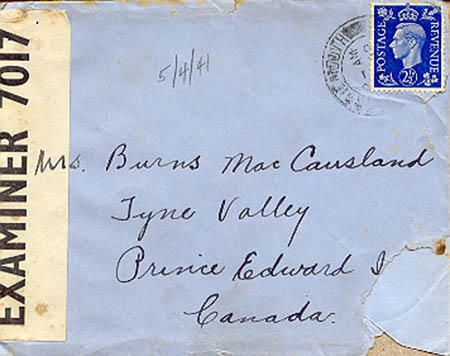 EXAMINER 7017
5/4/41
POSTAGE REVENUE
2½D
AM
Mrs. Burns MacCausland
Tyne Valley
Prince Edward I
Canada.